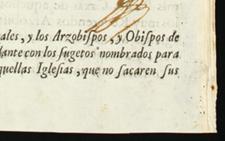 ales, y los Arzobispos, y Obispos de
lante con los sugetos nombrados para
quellas Iglesias, que no sacaren sus